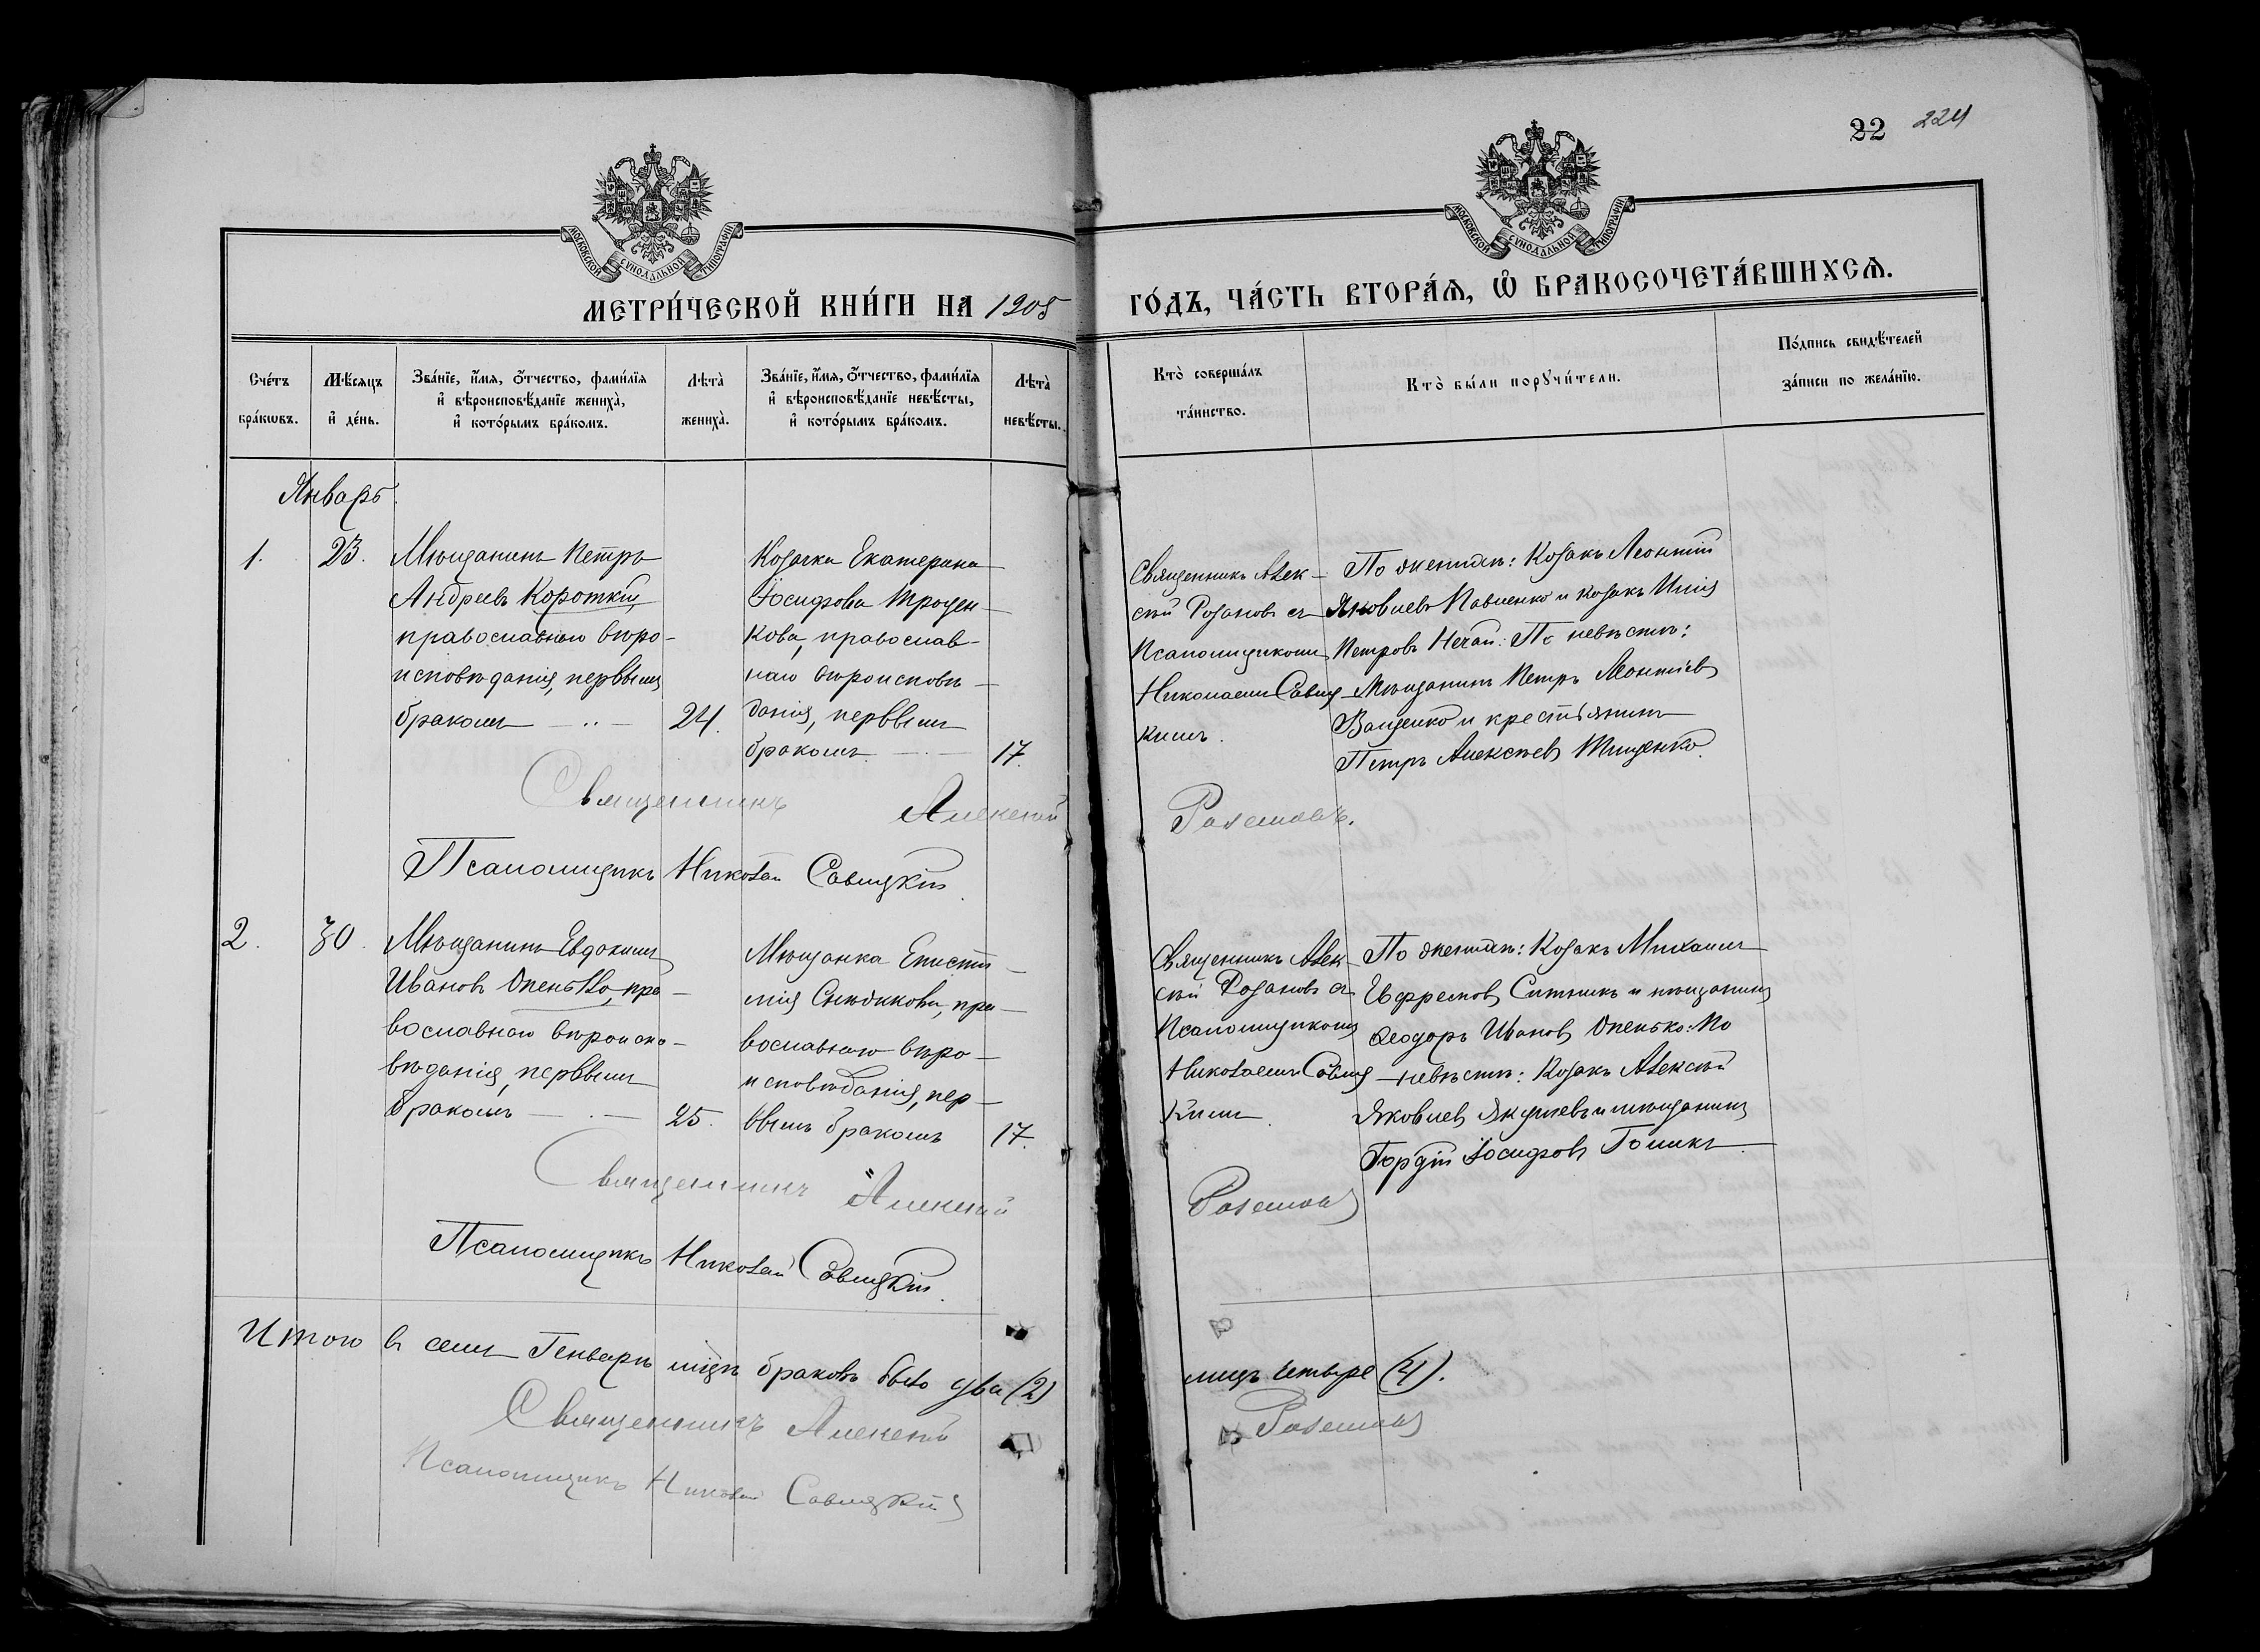 22 224
МОСКОВСКОЙ СѴНОДАЛЬНОЙ ТИПОГРАФІИ
МОСКОВСКОЙ СѴНОДАЛЬНОЙ ТИПОГРАФІИ
МЕТРИ́ЧЕСКОЙ КНИ́ГИ НА 1905
ГО́ДЪ, ЧА́СТЬ ВТОРА́Ѧ, Ѽ БРАКОСОЧЕТА́ВШИХСѦ.
Сче́тъ
бра́кѡвъ.
Мѣ́сѧцъ
и҆ де́нь.
Зва́нїе, и҆́мѧ, ѻ҆́тчество, фами́лїѧ
и҆ вѣроисповѣ́данїе женихà,
и҆ кото́рымъ бра́комъ.
Лѣтà
женихà.
Зва́нїе, и҆́мѧ, ѻ҆́тчество, фами́лїѧ
и҆ вѣроисповѣ́данїе невѣ́сты,
и҆ кото́рымъ бра́комъ.
Лѣтà
невѣ́сты.
Кто̀ соверша́лъ
та́инство.
Кто̀ бы́ли порꙋчи́тели.
По́дпись свидѣ́телей
за́писи по жела́нїю.
Январь.
1.
23.
Мѣщанинъ Петръ
Андреевъ Короткій,
православнаго вѣро-
исповѣданія, первымъ
бракомъ
24.
Козачка Екатерина
Іосифова Троцен-
кова, православ-
наго вѣроисповѣ-
данія, первымъ
бракомъ.
17.
Священникъ Алек-
сѣй Розановъ съ
Псаломщикомъ
Николаемъ Савиц-
кимъ.
По женихѣ: Козакъ Леонтій
Яковлевъ Павленко и козакъ Илія
Петровъ Нечай: По невѣстѣ:
Мѣщанинъ Петръ Леонтіевъ
Ващенко и крестьянинъ
Петръ Алексѣевъ Тищенко.
Священникъ Алексѣй Розановъ.
Псаломщикъ Николай Савицкій.
2.
30.
Мѣщанинъ Евдокимъ
Ивановъ Опенько, пра-
вославнаго вѣроиспо-
вѣданія, первымъ
бракомъ
25.
Мѣщанка Еписти-
мія Снѣдикова, пра-
вославнаго вѣро-
исповѣданія, пер-
вымъ бракомъ
17.
Священникъ Алек-
сѣй Розановъ съ
Псаломщикомъ
Николаемъ Савиц-
кимъ.
По женихѣ: Козакъ Михаилъ
Ефремовъ Ситникъ и мѣщанинъ
Ѳеодоръ Ивановъ Опенько: По
невѣстѣ: Козакъ Алексѣй
Яковлевъ и мѣщанинъ
Гордій Іосифовъ
Священникъ Алексѣй Розановъ
Псаломщикъ Николай Савицкій.
Итого въ семъ Генварѣ мцѣ браковъ было два (2)
лицъ четыре (4).
Священникъ Алексѣй Розановъ
Псаломщикъ Николай Савицкій